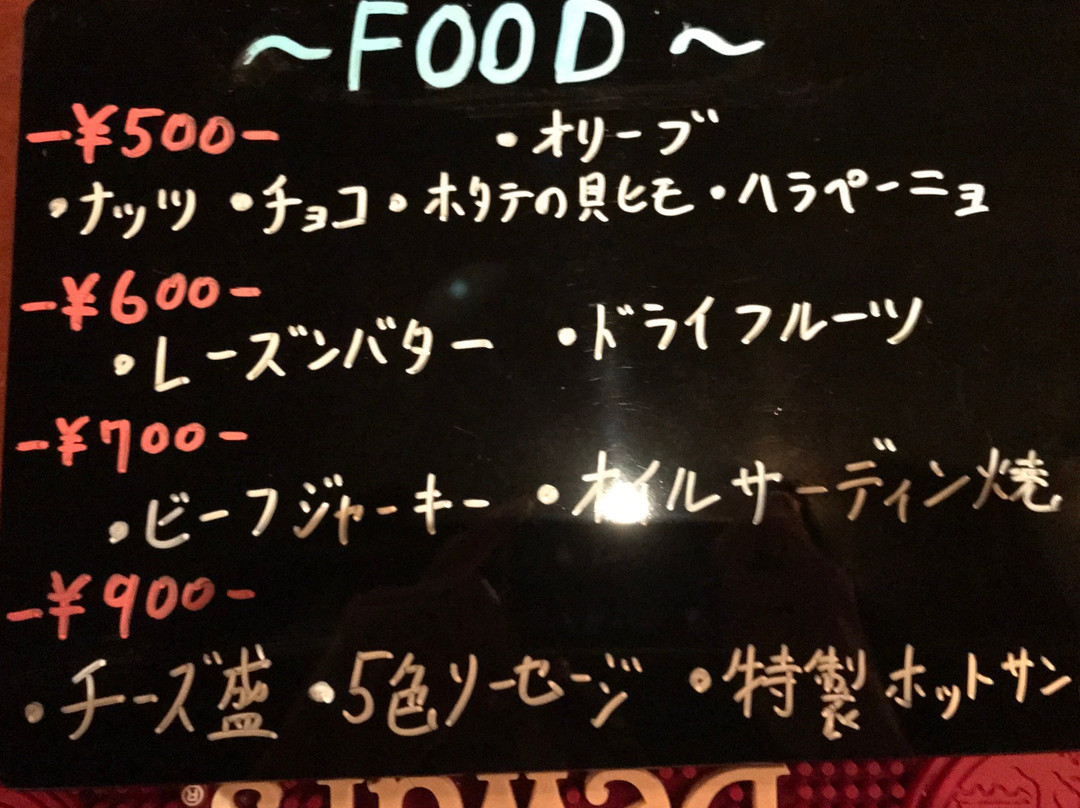 ～FOOD～
-¥500- ・オリーブ
・ナッツ ・チョコ ・ホタテの貝ヒモ ・ハラペーニョ
-¥600-
・レーズンバター ・ドライフルーツ
-¥700-
・ビーフジャーキー ・オイルサーディン焼
-¥900-
・チーズ盛 ・5色ソーセージ ・特製ホットサン
Dewar's ®